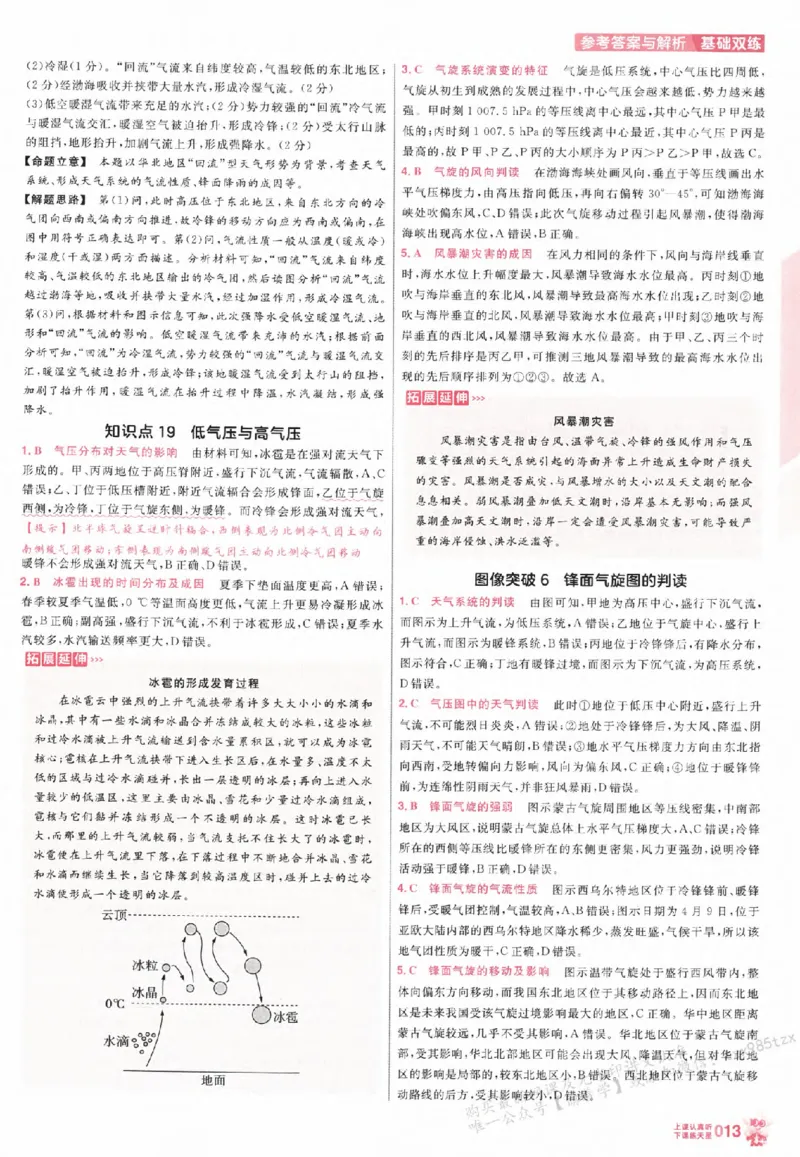 参考答案与解析 基础双练
(2)冷湿(1分)。“回流”气流来自纬度较高,气温较低的东北地区;
(2分)经渤海吸收并挟带大量水汽,形成冷湿气流。(2分)
(3)低空暖湿气流带来充足的水汽;(2分)势力较强的“回流”冷气流
与暖湿气流交汇,暖湿空气被迫抬升,形成冷锋;(2分)受太行山脉
的阻挡,地形抬升,加剧气流上升,形成强降水。(2分)
【命题立意】 本题以华北地区“回流”型天气形势为背景,考查天气
系统、形成天气系统的气流性质、锋面降雨的成因等。
【解题思路】 第(1)问,此时高压位于东北地区,来自东北方向的冷
气团向西南或偏南方向推进,故冷锋的移动方向应为西南或偏南,在
图中用符号正确表达即可。第(2)问,气流性质一般从温度(暖或冷)
和湿度(干或湿)两方面描述。分析材料可知,“回流”气流来自纬度
较高、气温较低的东北地区输出的冷气团,然后读图分析“回流”气流
越过渤海等地,吸收并挟带大量水汽,经过加湿作用,形成冷湿气流。
第(3)问,根据材料和图示信息可知,此次强降水受低空暖湿气流、地
形和“回流”气流的影响。低空暖湿气流带来充沛的水汽;根据前面
分析可知,“回流”为冷湿气流,势力较强的“回流”气流与暖湿气流交
汇,暖湿空气被迫抬升,形成冷锋;该地暖湿气流受到太行山的阻挡,
加剧了抬升作用,暖湿气流在抬升过程中降温,水汽凝结,形成强
降水。
知识点 19 低气压与高气压
1. B 气压分布对天气的影响 由材料可知,冰雹是在强对流天气下
形成的。甲、丙两地位于高压脊附近,盛行下沉气流,气流辐散,A、C
错误;乙、丁位于低压槽附近,附近气流辐合会形成锋面,乙位于气旋
西侧,为冷锋,丁位于气旋东侧,为暖锋。而冷锋会形成强对流天气,
【提示】北半球气旋呈逆时针辐合,西侧表现为北侧冷气团主动向
南侧暖气团移动;东侧表现为南侧暖气团主动向北侧冷气团移动
暖锋不会形成强对流天气,B正确、D错误。
2. B 冰雹出现的时间分布及成因 夏季下垫面温度更高,A错误;
春季较夏季气温低,0 ℃等温面高度更低,气流上升更易冷凝形成冰
雹,B正确;副高强,盛行下沉气流,不利于冰雹形成,C错误;夏季水
汽较多,水汽输送频率更大,D错误。
拓展延伸>>>
冰雹的形成发育过程
在冰雹云中强烈的上升气流挟带着许多大大小小的水滴和
冰晶,其中有一些水滴和冰晶合并冻结成较大的冰粒,这些冰粒
和过冷水滴被上升气流输送到含水量累积区,就可以成为冰雹
核心;雹核在上升气流挟带下进入生长区后,在水量多、温度不太
低的区域与过冷水滴碰并,长出一层透明的冰层;再向上进入水
量较少的低温区,这里主要由冰晶、雪花和少量过冷水滴组成,
雹核与它们黏并冻结形成一个不透明的冰层。这时冰雹已长
大,而那里的上升气流较弱,当气流支托不住长大了的冰雹时,
冰雹便在上升气流里下落,在下落过程中不断地合并冰晶、雪花
和水滴而继续生长,当它降落到较高温度区时,碰并上去的过冷
水滴便形成一个透明的冰层。
云顶
冰粒
冰晶
0℃
冰雹
水滴
地面
3. C 气旋系统演变的特征 气旋是低压系统,中心气压比四周低,
气旋从初生到成熟的发展过程中,中心气压会越来越低,势力越来越
强。甲时刻1 007.5 hPa的等压线离中心最远,其中心气压P甲是最
低的;丙时刻1 007.5 hPa的等压线离中心最近,其中心气压P丙是
最高的,故P甲、P乙、P丙的大小顺序为P丙>P乙>P甲,故选C。
4. B 气旋的风向判读 在渤海海峡处画风向,垂直于等压线画出水
平气压梯度力,由高压指向低压,再向右偏转30°—45°,可知渤海海
峡处吹偏东风,C、D错误;此次气旋移动过程引起风暴潮,使得渤海
海峡出现高水位,A错误,B正确。
5. A 风暴潮灾害的成因 在风力相同的条件下,风向与海岸线垂直
时,海水水位上升幅度最大,风暴潮导致海水水位最高。丙时刻①地
吹与海岸垂直的东北风,风暴潮导致最高海水水位出现;乙时刻②地
吹与海岸垂直的北风,风暴潮导致海水水位最高;甲时刻③地吹与海
岸垂直的西北风,风暴潮导致海水水位最高。由于甲、乙、丙三个时
刻的先后排序是丙乙甲,可推测三地风暴潮导致的最高海水水位出
现的先后顺序排列为①②③。故选A。
拓展延伸>>>
风暴潮灾害
风暴潮灾害是指由台风、温带气旋、冷锋的强风作用和气压
骤变等强烈的天气系统引起的海面异常上升造成生命财产损失
的灾害。风暴潮是否成灾,与风暴增水的大小以及天文潮的配合
息息相关。弱风暴潮叠加低天文潮时,沿岸基本无影响;而强风
暴潮叠加高天文潮时,沿岸一定会遭受风暴潮灾害,可能导致严
重的海岸侵蚀、洪水泛滥等。
图像突破 6 锋面气旋图的判读
1. C 天气系统的判读 由图可知,甲地为高压中心,盛行下沉气流,
而图示为上升气流,为低压系统,A错误;乙地位于气旋中心,盛行上
升气流,而图示为暖锋系统,B错误;丙地位于冷锋锋后,有降水分布,
图示符合,C正确;丁地有暖锋过境,而图示为下沉气流,为高压系统,
D错误。
2. C 气压图中的天气判读 此时①地位于低压中心附近,盛行上升
气流,不可能烈日炎炎,A错误;②地处于冷锋锋后,为大风、降温、阴
雨天气,不可能天气晴朗,B错误;③地水平气压梯度力方向由东北指
向西南,受地转偏向力影响,风向为偏东风,C正确;④地位于暖锋锋
前,为连绵性阴雨天气,并非狂风暴雨,D错误。
3. B 锋面气旋的强弱 图示蒙古气旋周围地区等压线密集,中南部
地区为大风区,说明蒙古气旋总体上水平气压梯度大,A、C错误;冷锋
所在的西侧等压线比暖锋所在的东侧更密集,风力更强劲,说明冷锋
活动强于暖锋,B正确,D错误。
4. C 锋面气旋的气流性质 图示西乌尔特地区位于冷锋锋前、暖锋
锋后,受暖气团控制,气温较高,A、B错误;图示日期为4月9日,位于
亚欧大陆内部的西乌尔特地区降水稀少,蒸发旺盛,气候干旱,所以该
地气团性质为暖干,C正确,D错误。
5. C 锋面气旋的移动及影响 图示温带气旋处于盛行西风带内,整
体向偏东方向移动,而我国东北地区位于其移动路径上,因而东北地
区是未来我国受该气旋过境影响最大的地区,C正确。华中地区距离
蒙古气旋较远,几乎不受其影响,A错误。华北地区位于蒙古气旋南
部,受其影响,华北北部地区可能会出现大风、降温天气,但对华北地
区的影响是局部的,较东北地区小,B错误。西北地区位于蒙古气旋移
动路线的后方,受其影响较小,D错误。
上课认真听
下课练天星 013